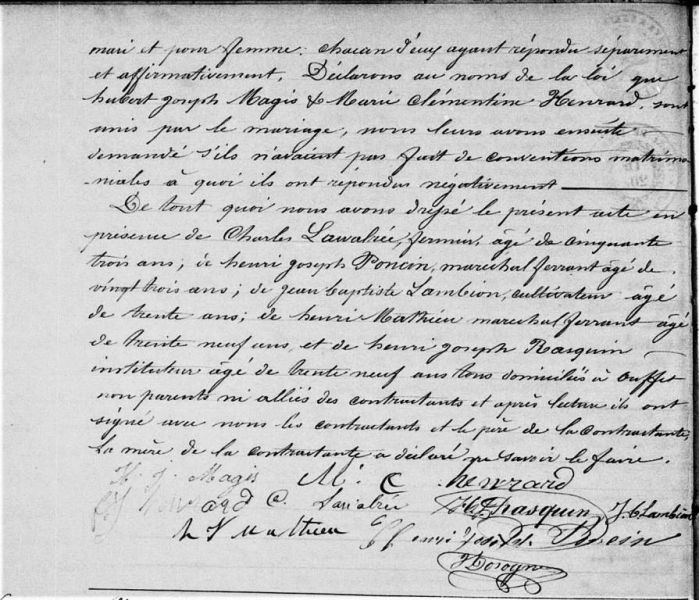 mari et pour femme : chacun d'eux ayant répondu séparément
et affirmativement, Déclarons au noms de la loi que
hubert joseph Magis & Marie Clémentine Henrard, sont
unis par le mariage, nous leurs avons ensuite
demandé s'ils n'avaient pas fait de conventions matrimo
niales à quoi ils ont répondus négativement
De tout quoi nous avons dressé le présent acte en
présence de Charles Lawalrée, fermier, âgé de cinquante
trois ans ; de henri joseph Poncin, maréchal ferrant âgé de
vingt trois ans ; de jean baptiste Lambion, cultivateur âgé
de trente ans ; de henri Mathieu marechal ferrant âgé
de trente neuf ans, et de henri joseph Rasquin
instituteur âgé de trente neuf ans tous domiciliés à Ouffet
non parents ni alliés des contractants et après lecture ils ont
signé avec nous les contractants et le père de la contractante,
La mère de la contractante a déclaré ne savoir le faire.
H. J. Magis M. C. henrard
henrard C. Lawalrée H. J. Rasquin J. B Lambion
h. J Mathieu henri joseph Poncin